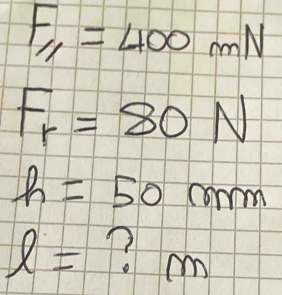 F// = 400 mN
Fr = 80 N
h = 50 mm
l = ? m